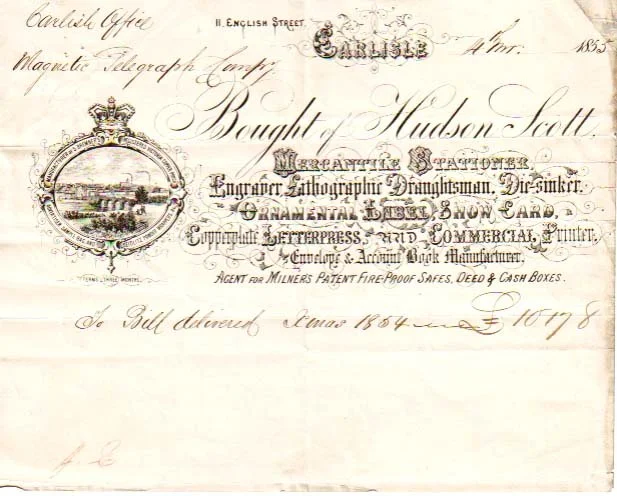 Carlisle Office
11, ENGLISH STREET.
CARLISLE 4th 1855
Magnetic Telegraph Compy
Bought of Hudson Scott.
MERCANTILE STATIONER,
Engraver, Lithographic Draughtsman, Die-sinker,
ORNAMENTAL LABEL, SHOW CARD,
Copperplate LETTERPRESS, AND COMMERCIAL Printer,
Envelope & Account Book Manufacturer.
TERMS, THREE MONTHS.
AGENT FOR MILNER'S PATENT FIRE-PROOF SAFES, DEED & CASH BOXES.
To Bill delivered Xmas 1854 £ 10 17 8